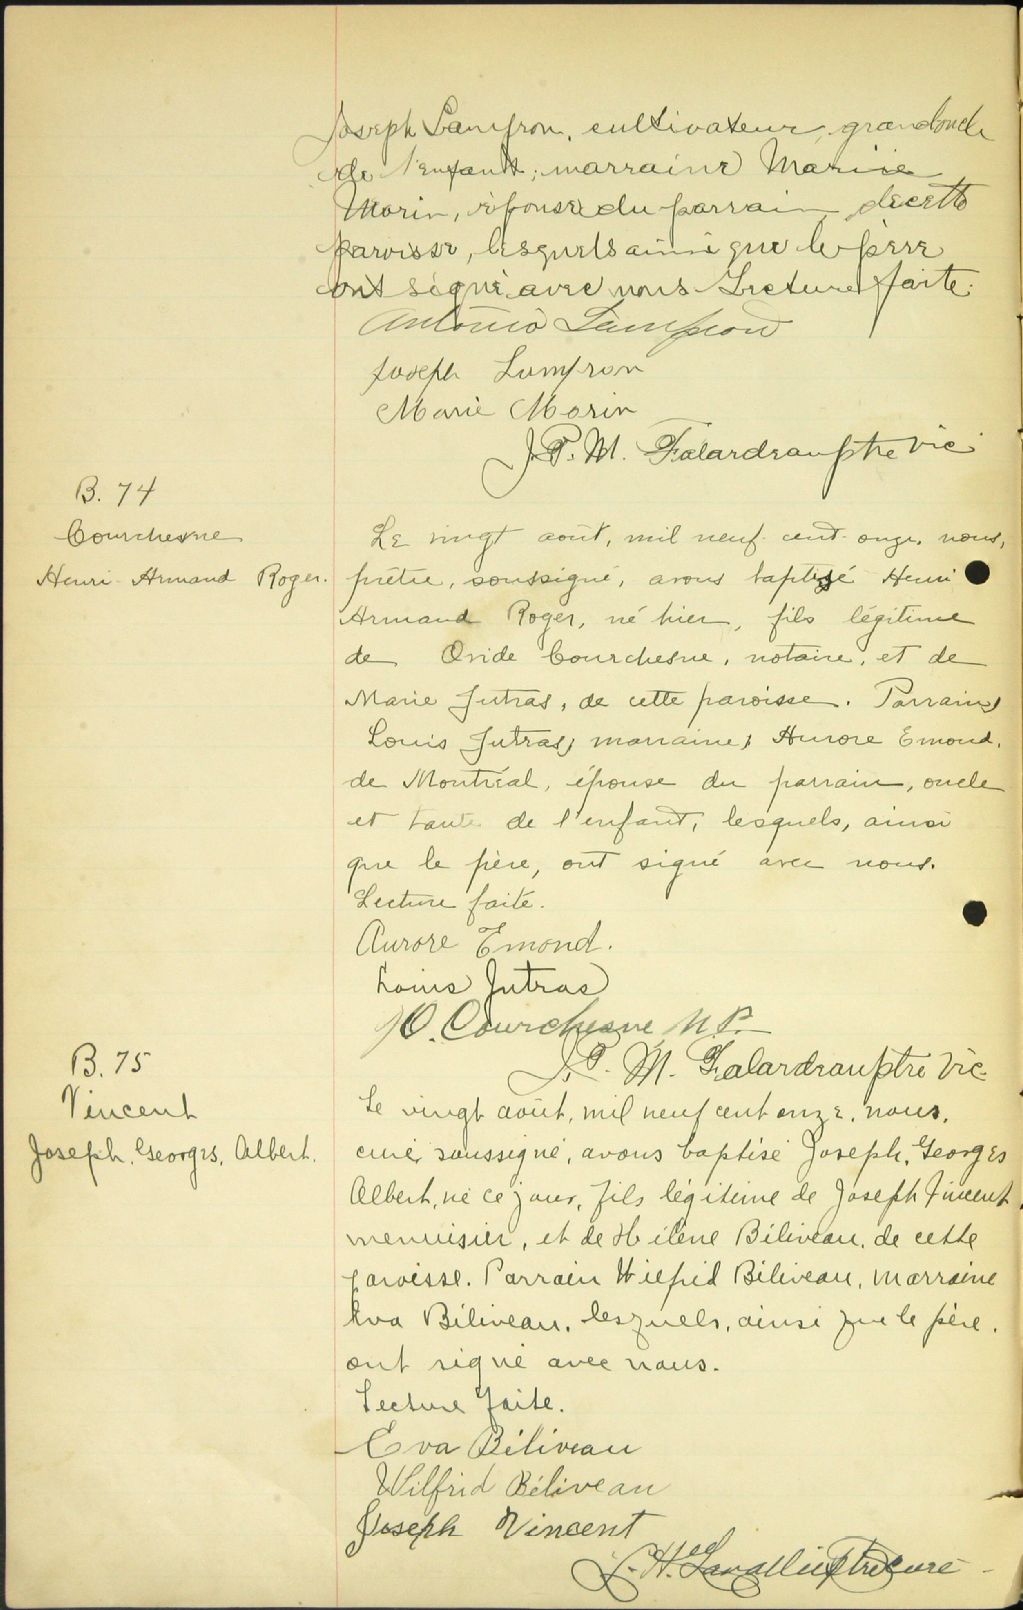 Joseph Lampron, cultivateur, grandoncle
de l'enfant; marraine Marie
Morin, épouse du parrain, de cette
paroisse, lesquels ainsi que le père
ont signé avec nous Lecture faite.
Antonio Lampron
Joseph Lampron
Marie Morin
J.P.M. Falardeau ptre vic
B. 74
Courchesne
Henri Armand Roger.
Le vingt août, mil neuf cent onze, nous,
prêtre, soussigné, avons baptisé Henri
Armand Roger, né hier, fils légitime
de Ovide Courchesne, notaire, et de
Marie Jutras, de cette paroisse. Parrain,
Louis Jutras; marraine, Aurore Emond,
de Montréal, épouse du parrain, oncle
et tante de l'enfant, lesquels, ainsi
que le père, ont signé avec nous.
Lecture faite.
Aurore Emond.
Louis Jutras
O. Courchesne, N.P.
J.P.M. Falardeau ptre vic
B. 75
Vincent
Joseph, Georges, Albert.
Le vingt août, mil neuf cent onze, nous,
curé soussigné, avons baptisé Joseph, Georges
Albert, né ce jour, fils légitime de Joseph Vincent
menuisier, et de Hélène Béliveau, de cette
paroisse. Parrain Wilfrid Béliveau, marraine
Eva Béliveau, lesquels, ainsi que le père,
ont signé avec nous.
Lecture faite.
Eva Béliveau
Wilfrid Béliveau
Joseph Vincent
Lavallée Ptre curé